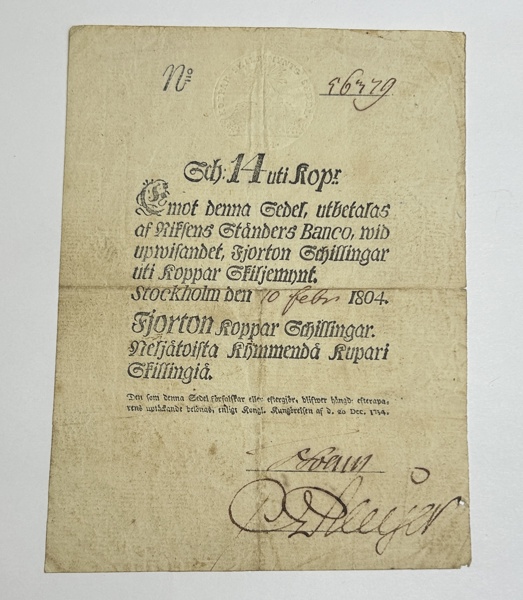 No 56379
Sch: 14 uti Kopr
Emot denna Sedel, utbetalas
af Riksens Ständers Banco, wid
upwisandet, Fjorton Schillingar
uti Koppar Skiljemynt.
Stockholm den 10 febr 1804.
Fjorton Koppar Schillingar.
Neljätoista Kymmendä Kupari
Skillingiä.
Den som denna Sedel förfalskar eller eftergiör, blifwer hängd: efterapa,
rens uptäckande belönas, enligt Kongl. Kungörelsen af d.